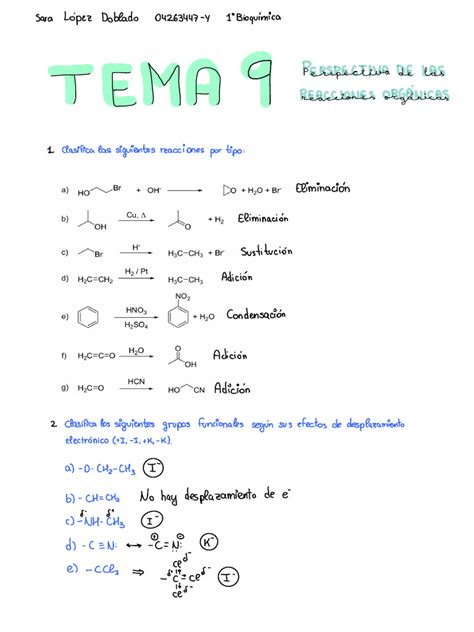 Sara López Doblado 04263447-Y 1º Bioquímica
TEMA 9 PERSPECTIVA DE LAS
REACCIONES ORGÁNICAS
1. Clasifica las siguientes reacciones por tipo:
a) HO Br + OH- O + H2O + Br- Eliminación
b) OH Cu, Δ O + H2 Eliminación
c) Br H- H3C-CH3 + Br- Sustitución
d) H2C=CH2 H2 / Pt H3C-CH3 Adición
e) HNO3 H2SO4 NO2 + H2O Condensación
f) H2C=C=O H2O O OH Adición
g) H2C=O HCN HO CN Adición
2. Clasifica los siguientes grupos funcionales según sus efectos de desplazamiento
electrónico (+I, -I, +K, -K).
a) -O-CH2-CH3 I-
b) -CH=CH2 No hay desplazamiento de e-
c) -NH-CH3 I-
d) -C≡N: ↔ -C=N: K-
e) -CCl3 ⇒ I-